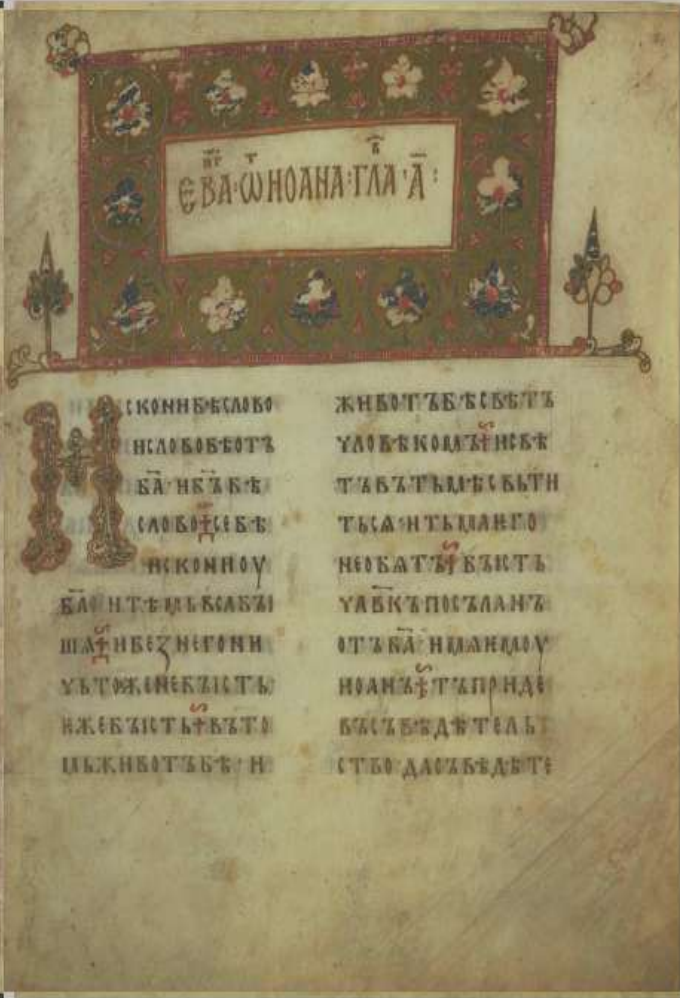 ЕВА·ѾИОАНА·ГЛА·А҃:
Искони бѣ слово
и слово бѣ отъ
б҃а· и б҃ъ бѣ
слово се бѣ
искони оу
б҃а· и тѣмь вса бы
шѧ и беꙁ него ни
чьтоже не бысть
иже бысть въ то
мь животъ бѣ· и
животъ бѣ свѣтъ
чловѣкомъ и свѣ
тъ въ тьмѣ свьти
тьсѧ· и тьма ѥго
не обѧтъ бысть
чл҃вкъ посъланъ
отъ б҃а· имѧ ѥмоу
иоанъ тъ приде
въ съвѣдѣтель
ство да съвѣдѣте